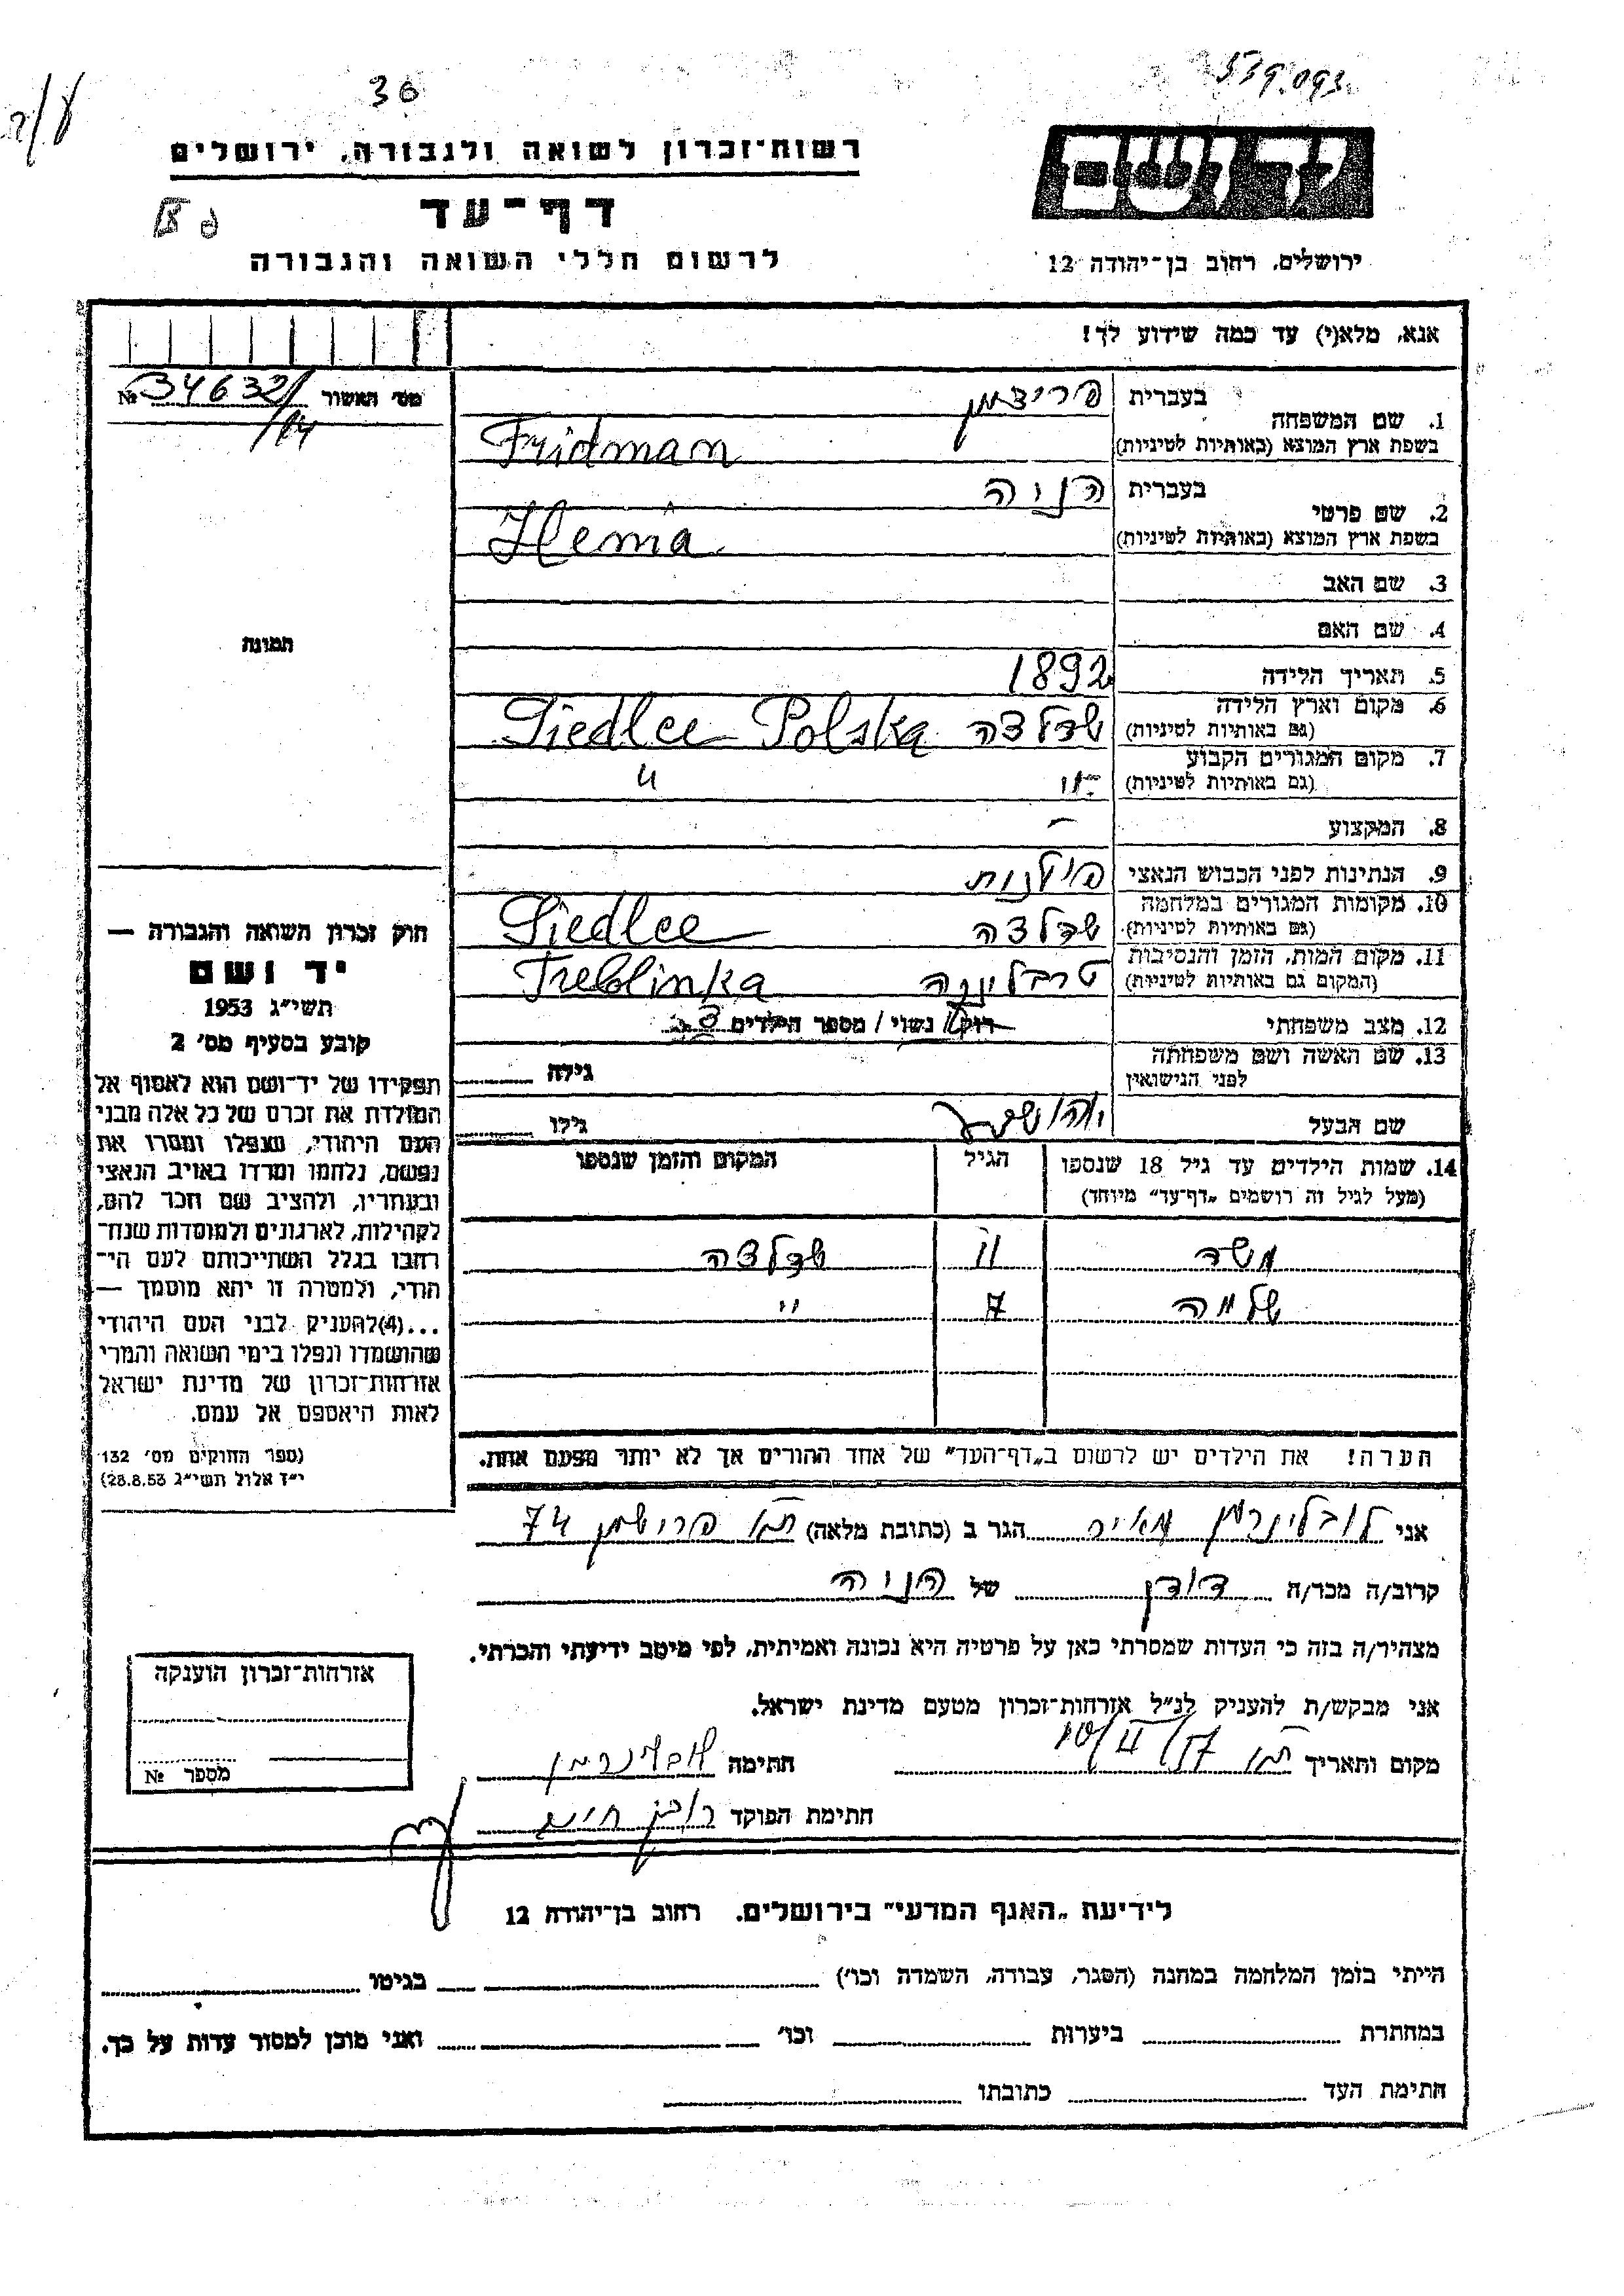 36
539.093
רשות־זכרון לשואה ולגבורה, ירושלים
דף־עד
לרשום חללי השואה והגבורה
יד ושם
ירושלים, רחוב בן־יהודה 12
אנא, מלא(י) עד כמה שידוע לך!
מס' האשור 34632/ №
1. שם המשפחה
בעברית פרידמן
בשפת ארץ המוצא (באותיות לטיניות) Fridman
2. שם פרטי
בעברית הניה
בשפת ארץ המוצא (באותיות לטיניות) Henia
3. שם האב
4. שם האם
5. תאריך הלידה 1892
6. מקום וארץ הלידה
(גם באותיות לטיניות) שדלצה Siedlce Polska
7. מקום המגורים הקבוע
(גם באותיות לטיניות) " "
8. המקצוע –
9. הנתינות לפני הכבוש הנאצי פולנית
10. מקומות המגורים במלחמה
(גם באותיות לטיניות) שדלצה Siedlce
11. מקום המות, הזמן והנסיבות
(המקום גם באותיות לטיניות) טרבלינקה Treblinka
12. מצב משפחתי רוק/ נשוי / מספר הילדים 3
13. שם האשה ושם משפחתה
לפני הנישואין
גילה
שם הבעל יהושע גילו
14. שמות הילדים עד גיל 18 שנספו
(מעל לגיל זה רושמים „דף־עד" מיוחד)
הגיל
המקום והזמן שנספו
11 שדלצה
שלמה 7 "
הערה! את הילדים יש לרשום ב„דף־העד" של אחד ההורים אך לא יותר מפעם אחת.
תמונה
חוק זכרון השואה והגבורה —
יד ושם
תשי"ג 1953
קובע בסעיף מס' 2
תפקידו של יד־ושם הוא לאסוף אל
המולדת את זכרם של כל אלה מבני
העם היהודי, שנפלו ומסרו את
נפשם, נלחמו ומרדו באויב הנאצי
ובעוזריו, ולהציב שם וזכר להם,
לקהילות, לארגונים ולמוסדות שנח־
רבו בגלל השתייכותם לעם הי־
הודי, ולמטרה זו יהא מוסמך —
...(4)להעניק לבני העם היהודי
שהושמדו ונפלו בימי השואה והמרי
אזרחות־זכרון של מדינת ישראל
לאות היאספם אל עמם.
(ספר החוקים מס' 132
י"ז אלול תשי"ג 28.8.53)
אני לובלינרמן מאיר הגר ב (כתובת מלאה) ת"א פרישמן 74
קרוב/ה מכר/ה דודן של הניה
מצהיר/ה בזה כי העדות שמסרתי כאן על פרטיה היא נכונה ואמיתית, לפי מיטב ידיעתי והכרתי.
אני מבקש/ת להעניק לנ"ל אזרחות־זכרון מטעם מדינת ישראל.
מקום ותאריך ת"א חתימה לובלינרמן
חתימת הפוקד
אזרחות־זכרון הוענקה
מספר №
לידיעת „האגף המדעי" בירושלים, רחוב בן־יהודה 12
הייתי בזמן המלחמה במחנה (הסגר, עבודה, השמדה וכו') בגיטו
במחתרת ביערות וכו' ואני מוכן למסור עדות על כך.
חתימת העד כתובתו